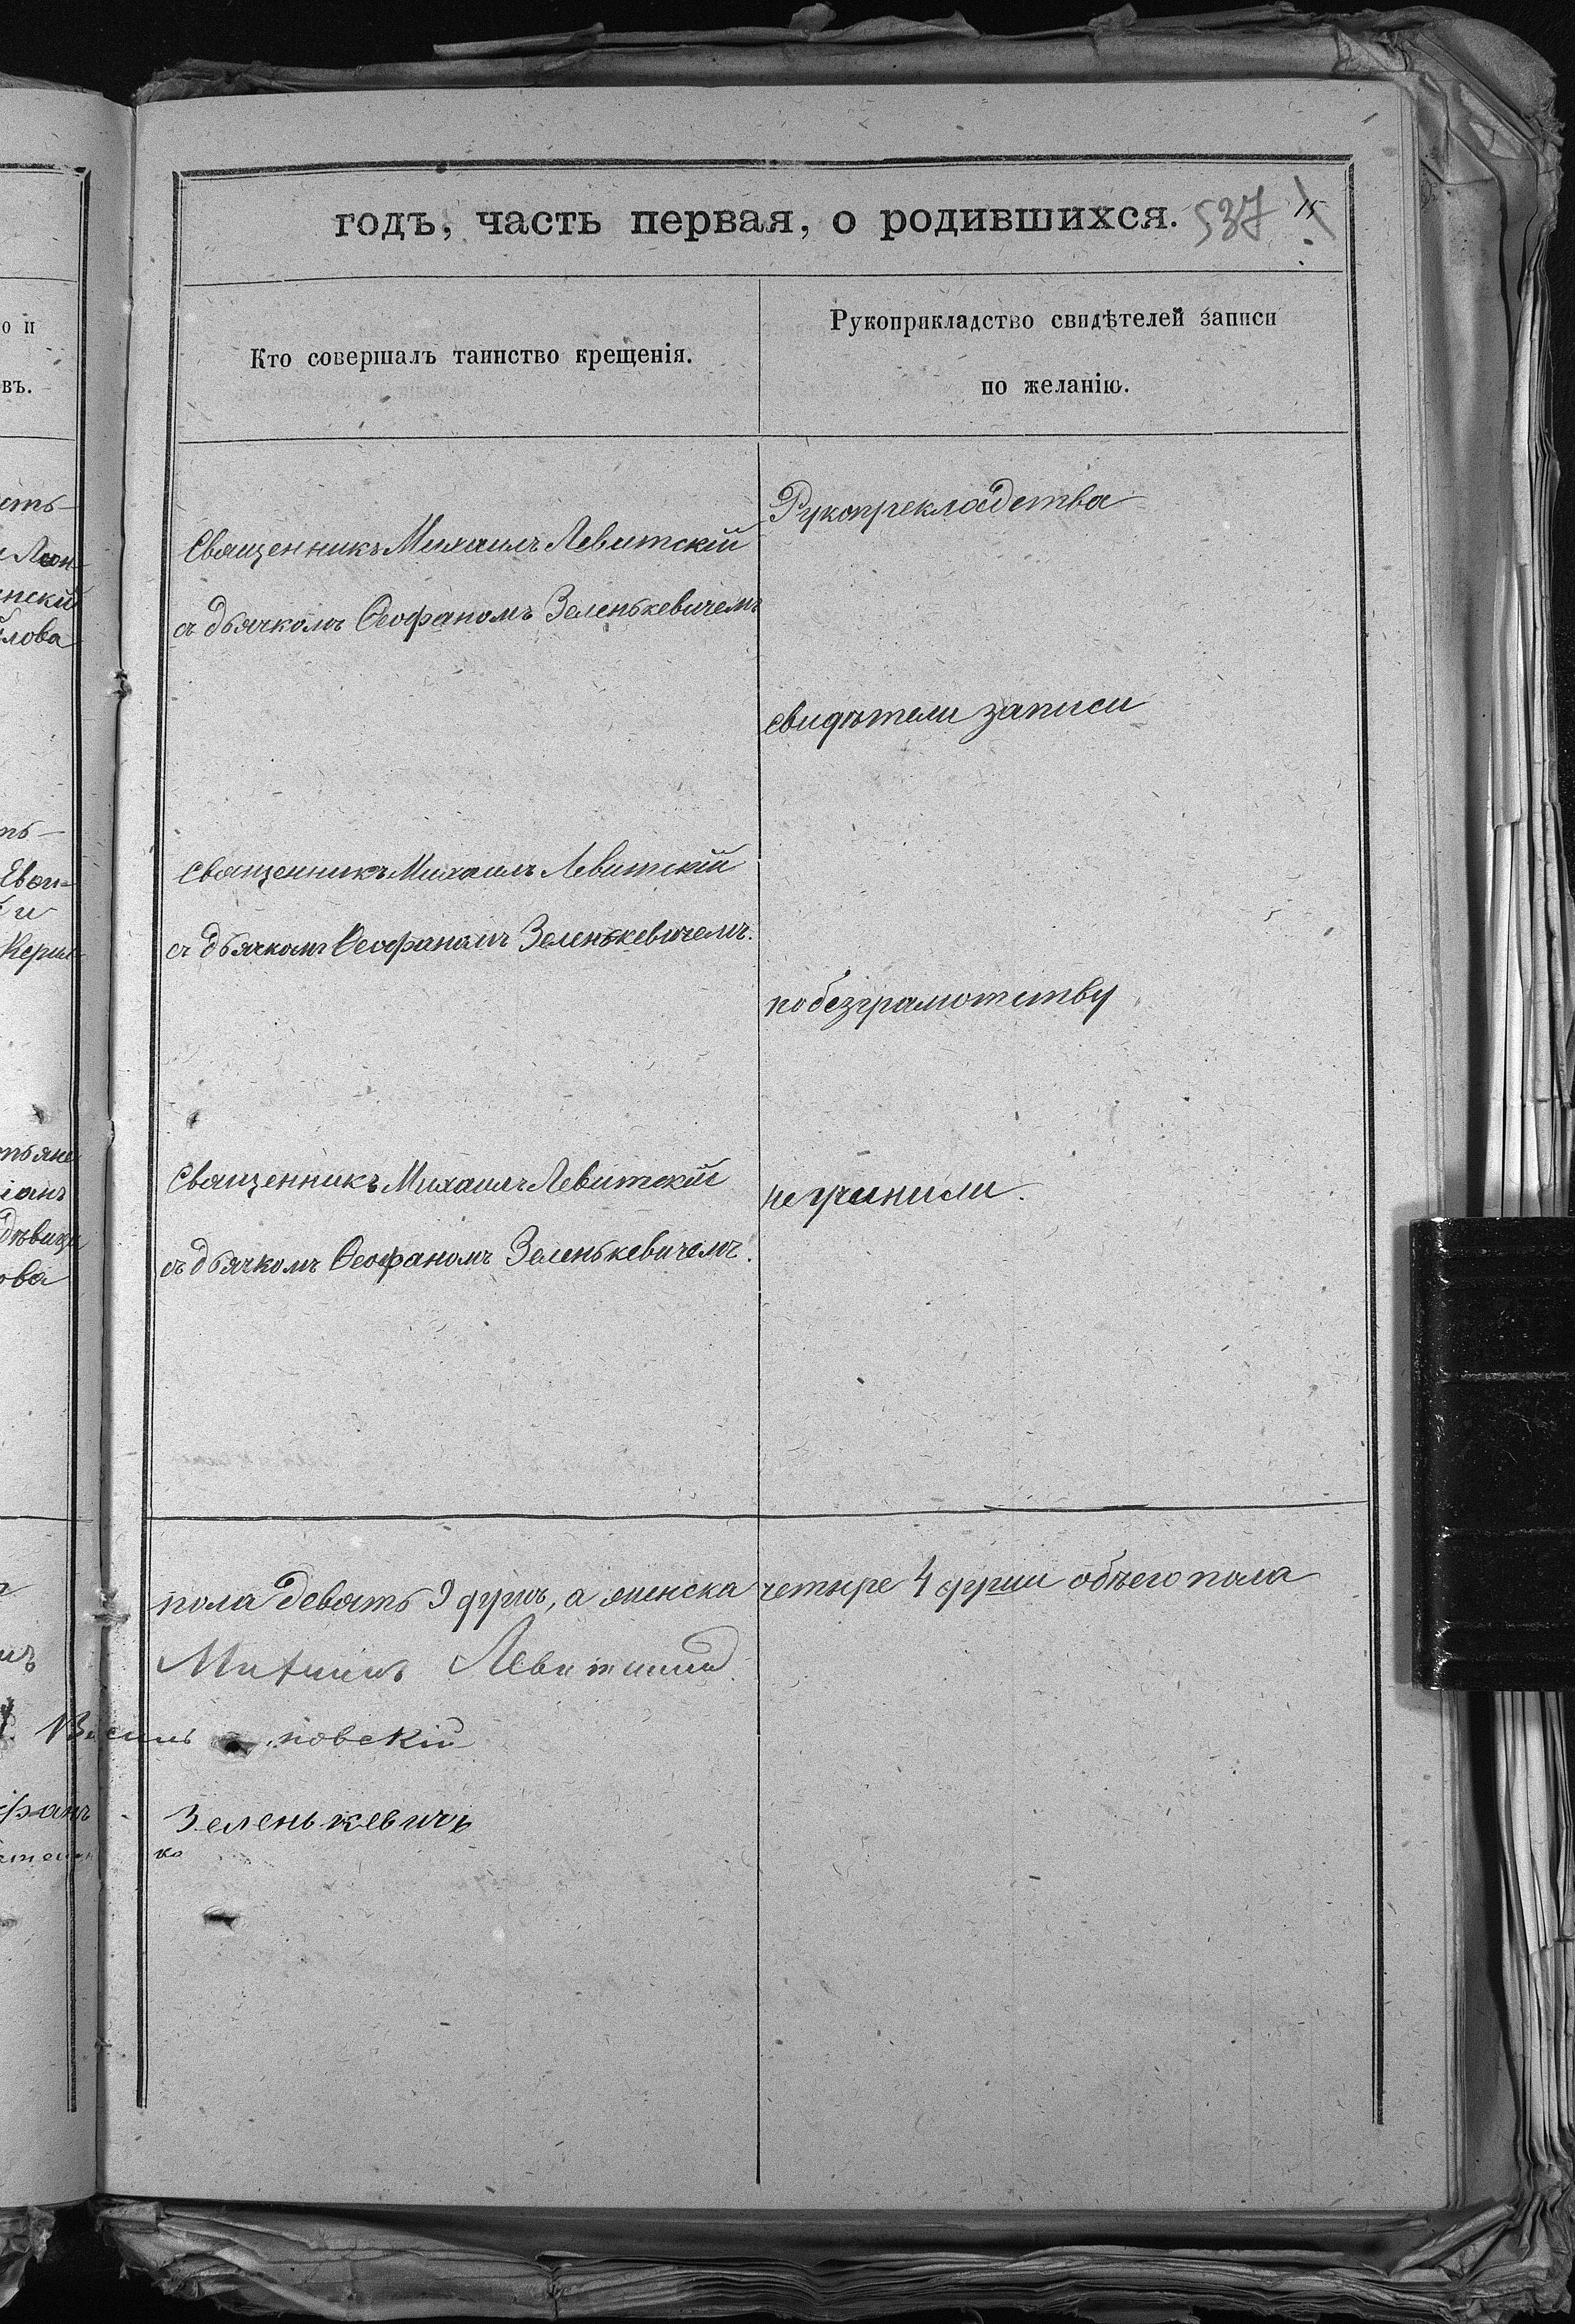 годъ, часть первая, о родившихся. 537 15
о и
въ.
Кто совершалъ таинство крещенія.
Рукоприкладство свидѣтелей записи
по желанію.
Священникъ Михаилъ Левитскій
съ дьячкомъ Ѳеофаномъ Зеленькевичемъ
Рукопрекладства
свидѣтели записи
Священникъ Михаилъ Левитскій
съ дьячкомъ Ѳеофаномъ Зеленькевичемъ.
по безграмотству
Священникъ Михаилъ Левитскій
съ дьячкомъ Ѳеофаномъ Зеленькевичемъ.
не учинили.
пола девять 9 душъ, а женска четыре 4 души обѣего пола
Михаилъ Левитский
новскій
Зеленькевичъ
ко